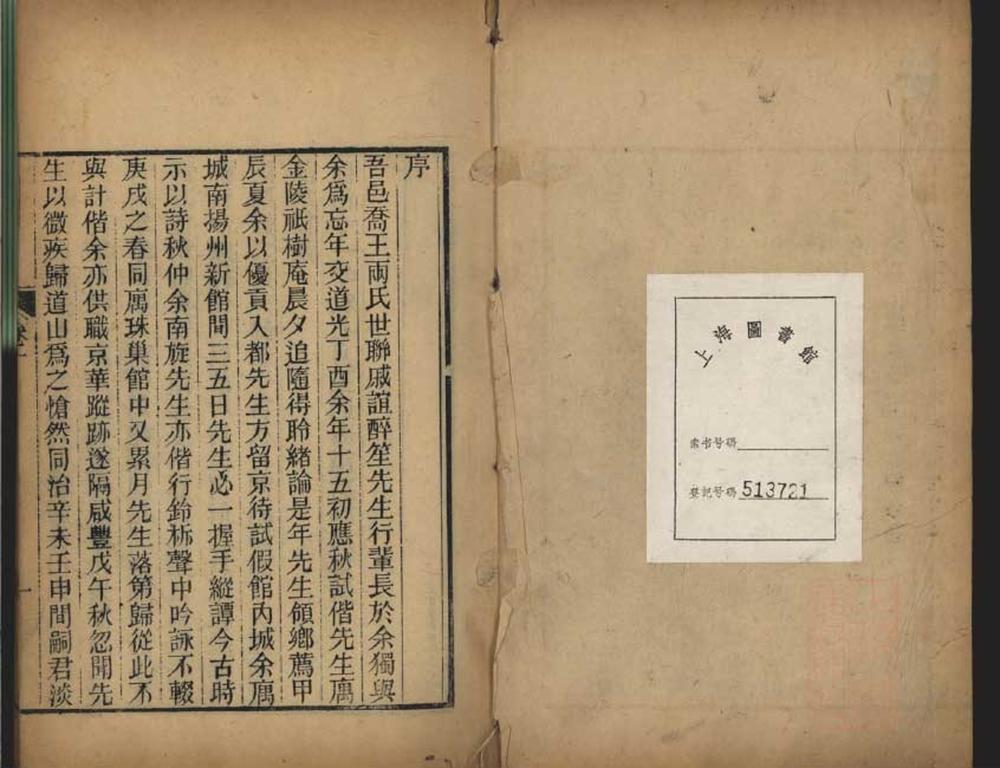 上海圖書館
索书号碼
登記号碼 513721
序
吾邑喬王兩氏世聯戚誼醉笙先生行輩長於余獨與
余爲忘年交道光丁酉余年十五初應秋試偕先生廡
金陵祇樹庵晨夕追隨得聆緒論是年先生領鄉薦甲
辰夏余以優貢入都先生方留京待試假館內城余廡
城南揚州新館間三五日先生必一握手縱譚今古時
示以詩秋仲余南旋先生亦偕行鈴柝聲中吟詠不輟
庚戌之春同廡珠巢館中又累月先生落第歸從此不
與計偕余亦供職京華蹤跡遂隔咸豐戊午秋忽聞先
生以微疾歸道山爲之愴然同治辛未壬申間嗣君淡
一